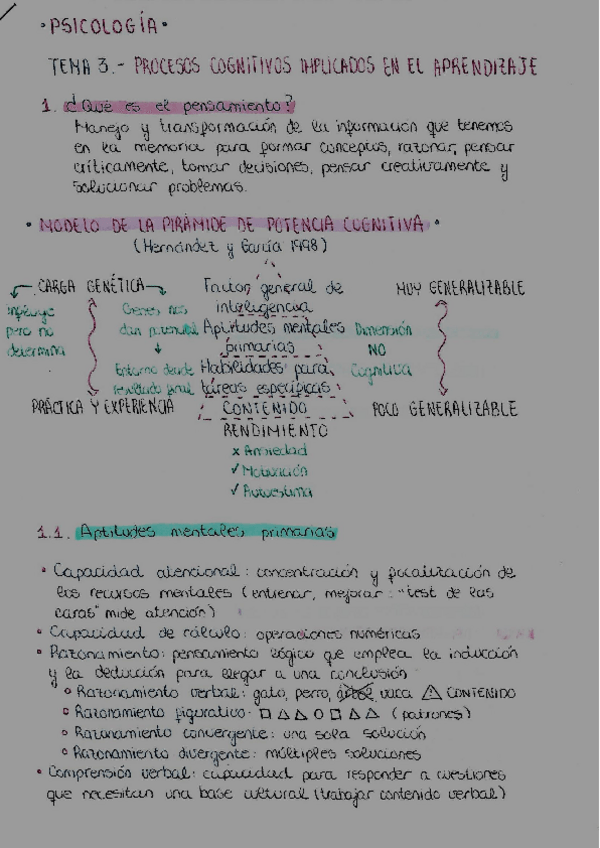 • PSICOLOGÍA •
TEMA 3.- PROCESOS COGNITIVOS IMPLICADOS EN EL APRENDIZAJE
1. ¿Qué es el pensamiento?
Manejo y transformación de la información que tenemos
en la memoria para formar conceptos, razonar, pensar
críticamente, tomar decisiones, pensar creativamente y
solucionar problemas.
• MODELO DE LA PIRÁMIDE DE POTENCIA COGNITIVA •
(Hernández y García 1998)
CARGA GENÉTICA
influye
pero no
determina
PRÁCTICA Y EXPERIENCIA
Genes nos
dan potencial
↓
Entorno desde
resultado final
Factor general de
inteligencia
Aptitudes mentales
primarias
Habilidades para
tareas específicas
CONTENIDO
RENDIMIENTO
x Ansiedad
✓ Motivación
✓ Autoestima
Dimensión
NO
Cognitiva
MUY GENERALIZABLE
POCO GENERALIZABLE
1.1. Aptitudes mentales primarias
• Capacidad atencional: concentración y focalización de
los recursos mentales (entrenar, mejorar: "test de las
caras" mide atención)
• Capacidad de cálculo: operaciones numéricas
• Razonamiento: pensamiento lógico que emplea la inducción
y la deducción para llegar a una conclusión
° Razonamiento verbal: gato, perro, árbol, vaca ⚠ CONTENIDO
° Razonamiento figurativo: □ △ △ ○ □ △ △ (patrones)
° Razonamiento convergente: una sola solución
° Razonamiento divergente: múltiples soluciones
• Comprensión verbal: capacidad para responder a cuestiones
que necesitan una base cultural (trabajar contenido verbal)